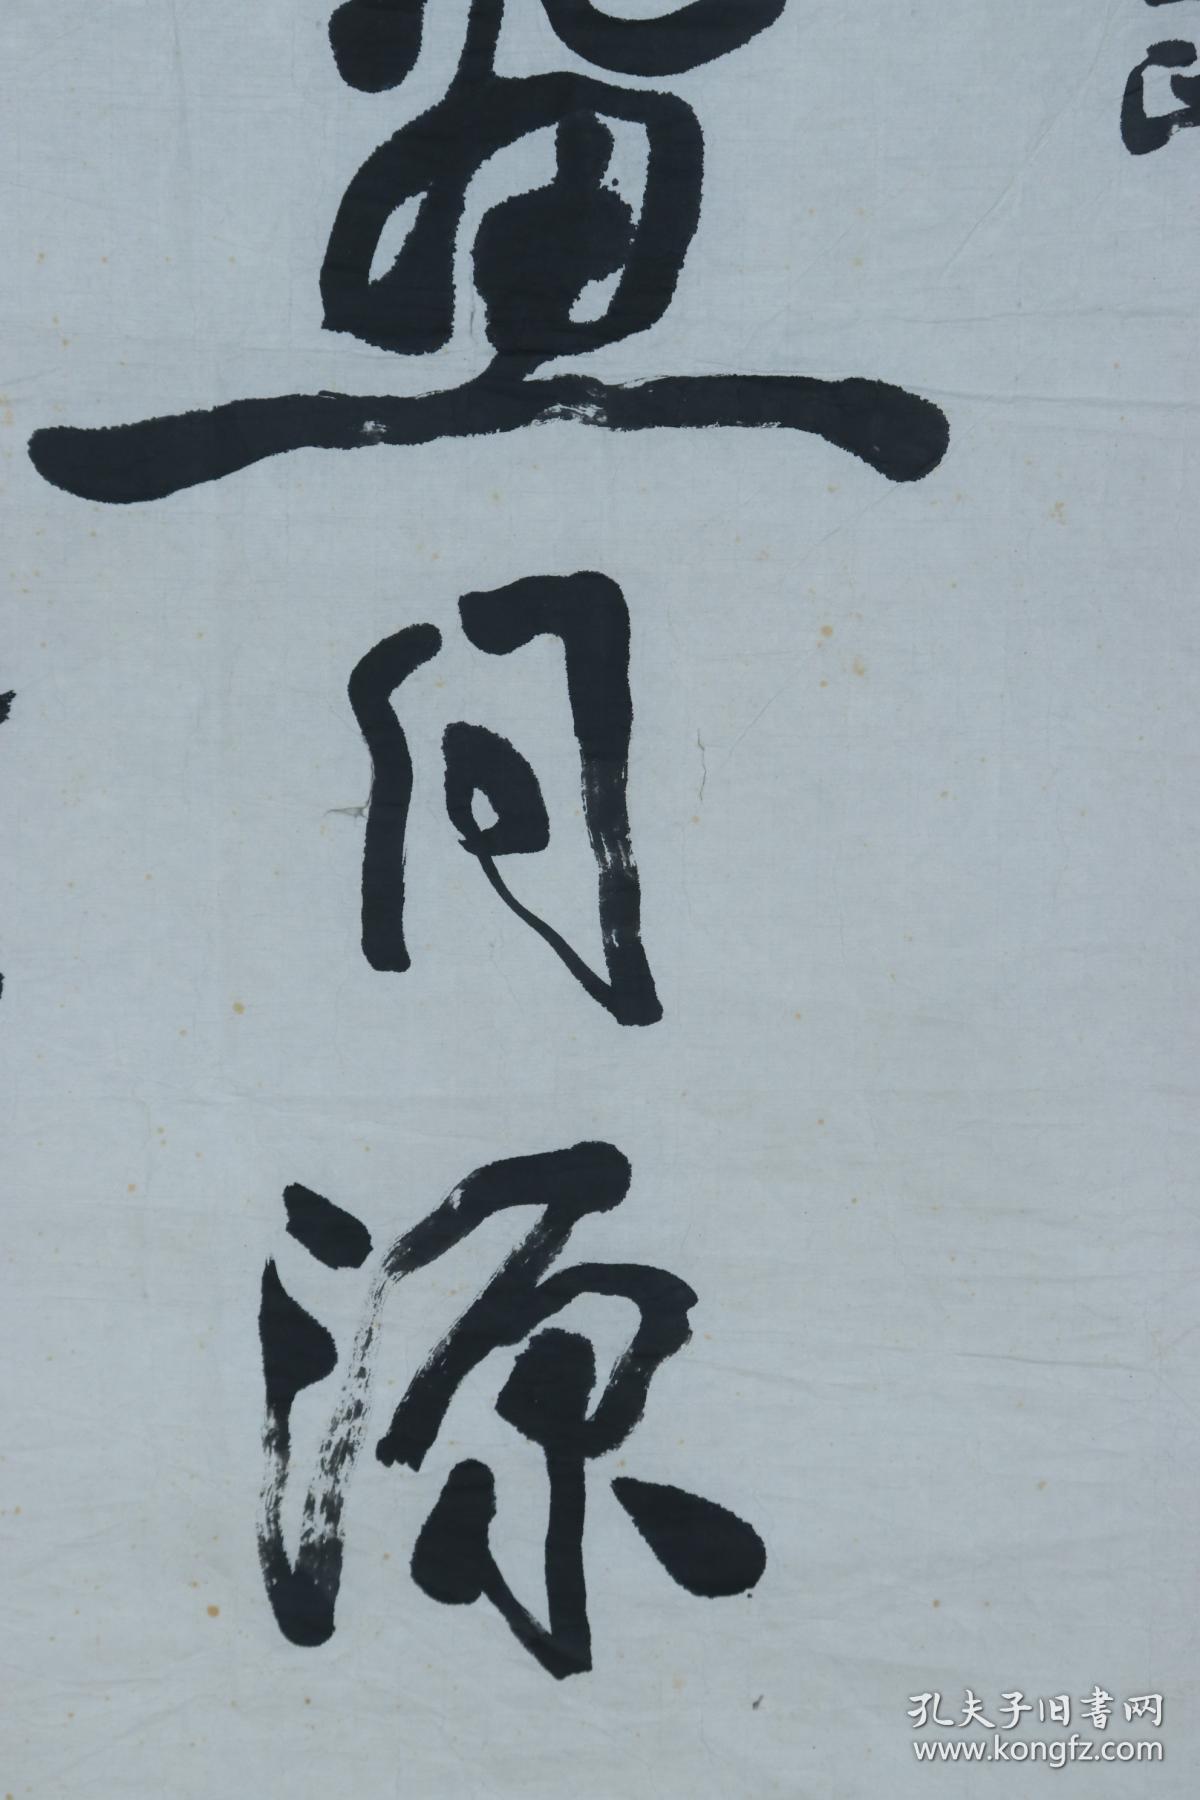 畫同源
孔夫子旧書网
www.kongfz.com